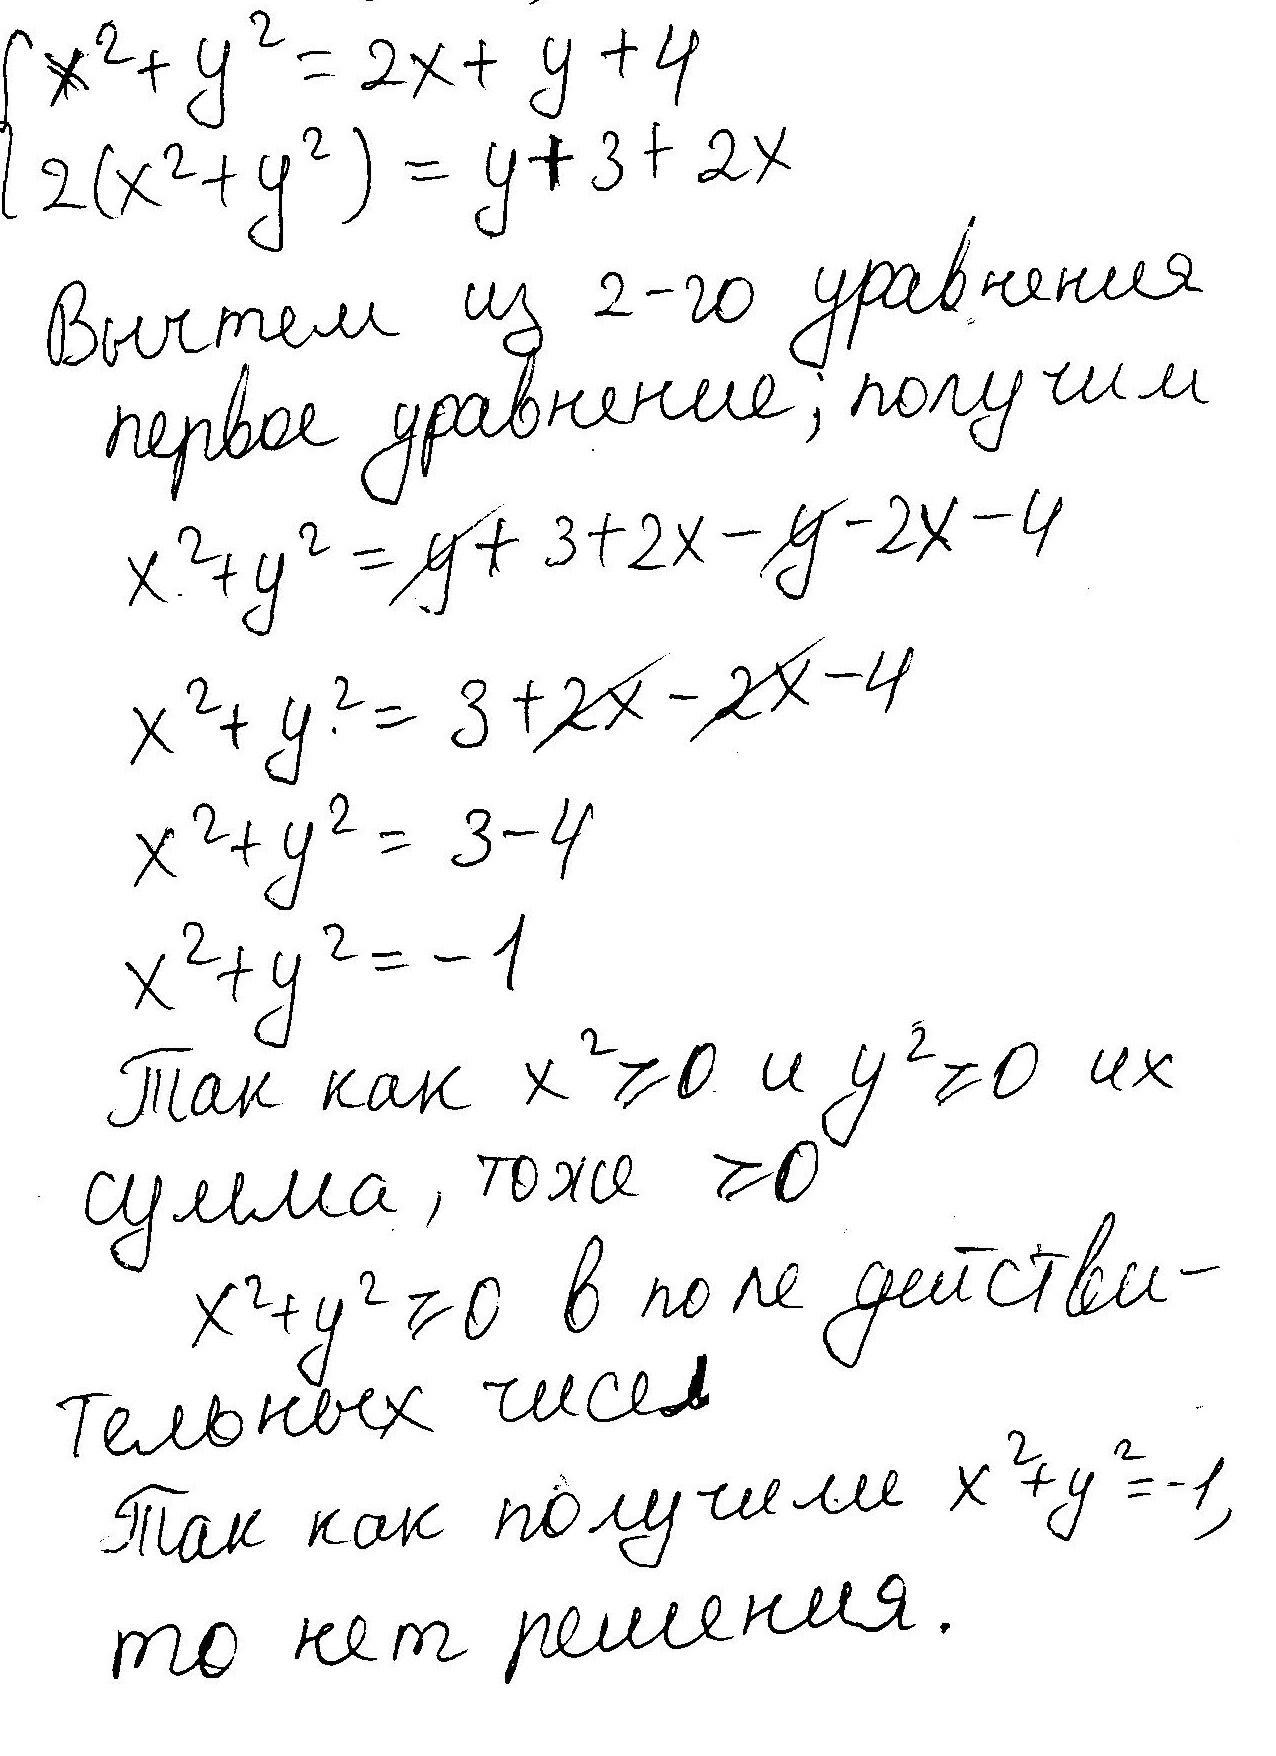 x² + y² = 2x + y + 4
2(x² + y²) = y + 3 + 2x
Вычтем из 2-го уравнения
первое уравнение, получим
x² + y² = y + 3 + 2x - y - 2x - 4
x² + y² = 3 + 2x - 2x - 4
x² + y² = 3 - 4
x² + y² = -1
Так как x² ⩾ 0 и y² ⩾ 0 их
сумма, тоже ⩾ 0
x² + y² ⩾ 0 в поле действи-
тельных чисел
Так как получили x² + y² = -1,
то нет решения.